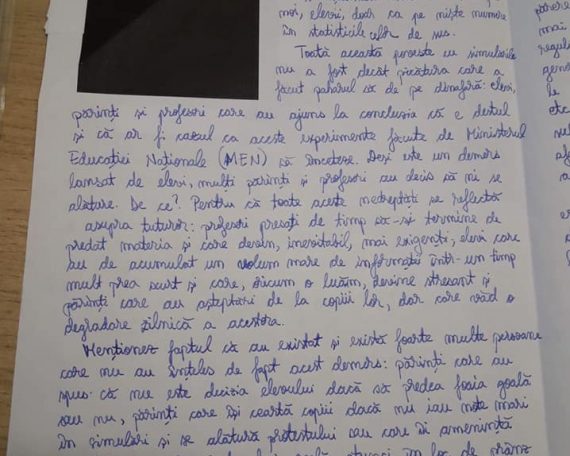 noi, elevii, doar ca pe niște numere
în statisticile celor de sus.
Toată această poveste cu simulările
nu a fost decât picătura care a
făcut paharul să dea pe dinafară: elevi,
părinți și profesori care au ajuns la concluzia că e destul
și că ar fi cazul ca aceste experimente făcute de Ministerul
Educației Naționale (MEN) să înceteze. Deși este un demers
lansat de elevi, mulți părinți și profesori au decis să ni se
alăture. De ce?. Pentru că toate aceste nedreptăți se reflectă
asupra tuturor: profesori presați de timp să-și termine de
predat materia și care devin, inevitabil, mai exigenți, elevi care
au de acumulat un volum mare de informații într-un timp
mult prea scurt și care, oricum o luăm, devine stresant și
părinți care au așteptări de la copiii lor, dar care văd o
degradare zilnică a acestora.
Menționez faptul că au existat și există foarte multe persoane
care nu au înțeles de fapt acest demers: părinți care au
spus că nu este decizia elevului dacă să predea foaia goală
sau nu, părinți care își ceartă copiii dacă nu iau note mari
în simulări și se alătură protestului sau care îi amenință
în loc de
părere
mai
regul
gene
le
etc